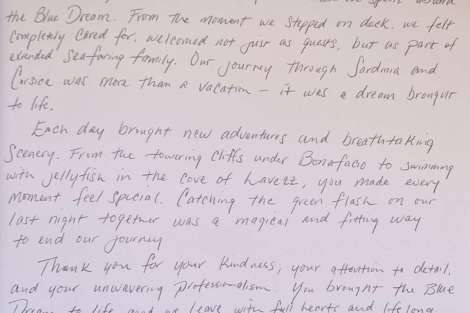 the Blue Dream. From the moment we stepped on deck, we felt
completely cared for, welcomed not just as guests, but as part of
extended seafaring family. Our journey through Sardinia and
Corsica was more than a vacation – it was a dream brought
to life.
Each day brought new adventures and breathtaking
scenery. From the towering cliffs under Bonafacio to swimming
with jellyfish in the cove of Lavezz, you made every
moment feel special. Catching the green flash on our
last night together was a magical and fitting way
to end our journey
Thank you for your kindness, your attention to detail,
and your unwavering professionalism. You brought the Blue
Dream to life, and we leave with full hearts and lifelong